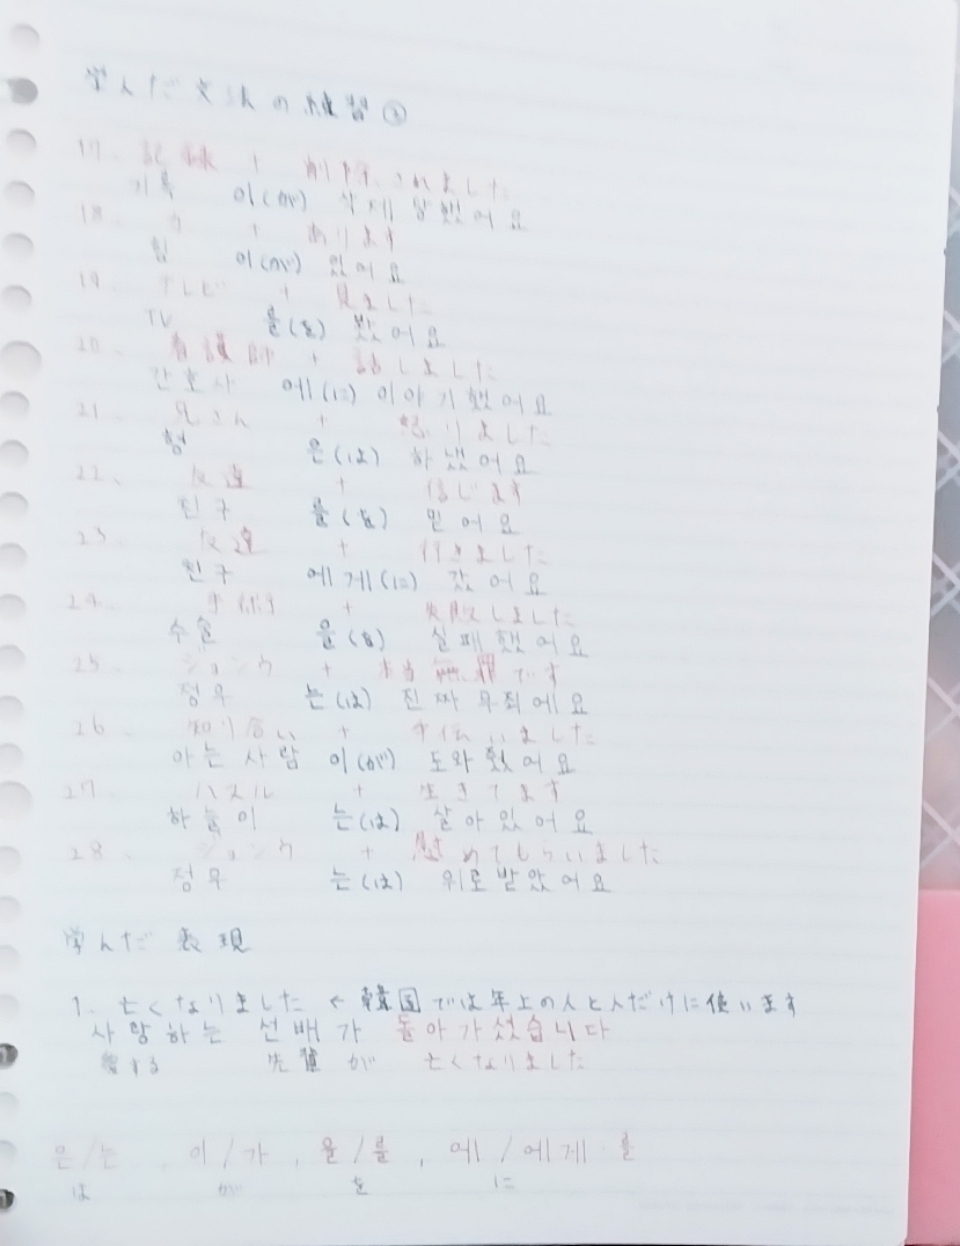 学んだ文法の練習②
17. 記録 + 削除されました
기록 이(が) 삭제 당했어요
18. 力 + あります
힘 이(が) 있어요
19. テレビ + 見ました
TV 를(を) 봤어요
20. 看護師 + 話しました
간호사 에(に) 이야기했어요
21. 兄さん + 怒りました
형 은(は) 하냈어요
22. 友達 + 信じます
친구 를(を) 믿어요
23. 友達 + 行きました
친구 에게(に) 갔어요
24. 手術 + 失敗しました
수술 을(を) 실패했어요
25. ジョンウ + 本当無罪です
정우 는(は) 진짜 무죄에요
26. 知り合い + 手伝いました
아는 사람 이(が) 도와줬어요
27. ハヌル + 生きてます
하늘이 는(は) 살아있어요
28. ジョンウ + 慰めてもらいました
정우 는(は) 위로 받았어요
学んだ表現
1. 亡くなりました ← 韓国では年上の人と人だけに使います
사랑하는 선배가 돌아가셨습니다
愛する 先輩 が 亡くなりました
은/는, 이/가, 을/를, 에/에게 를
は が を に